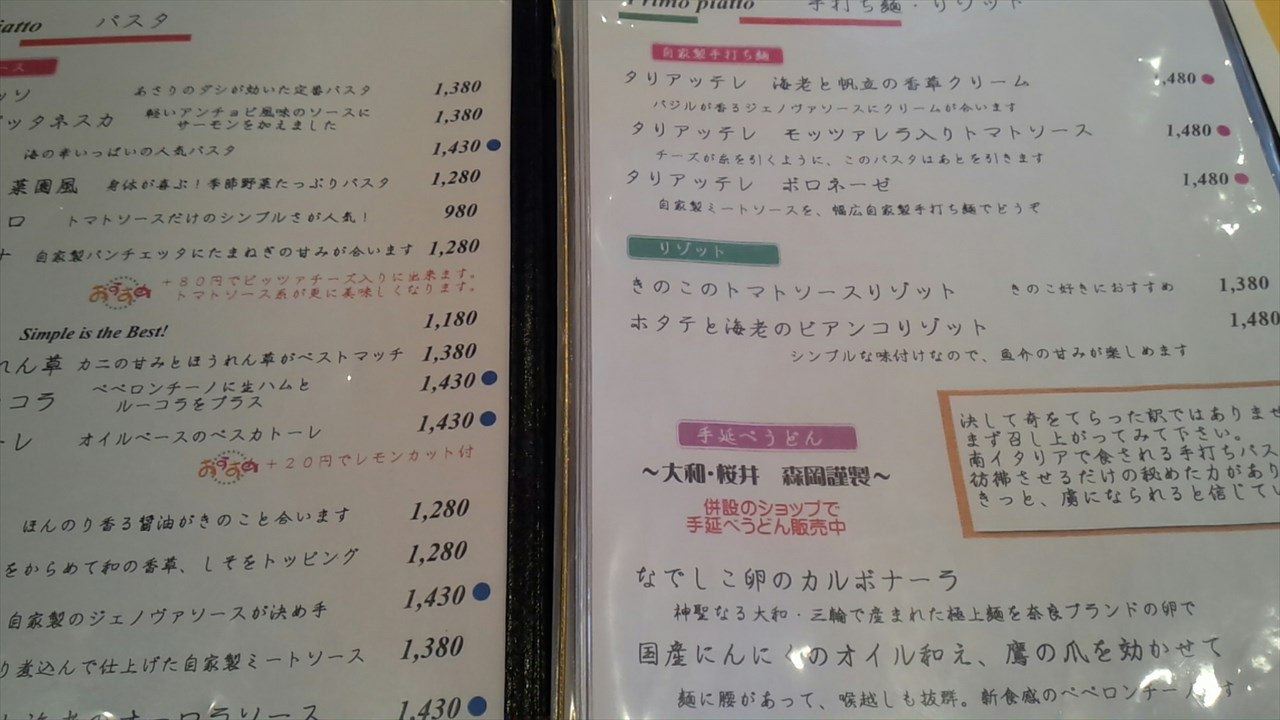 iatto パスタ
ース
ッソ あさりのダシが効いた定番パスタ 1,380
ッタネスカ 軽いアンチョビ風味のソースに
サーモンを加えました 1,380
海の幸いっぱいの人気パスタ 1,430
菜園風 身体が喜ぶ!季節野菜たっぷりパスタ 1,280
ロ トマトソースだけのシンプルさが人気! 980
ナ 自家製パンチェッタにたまねぎの甘みが合います 1,280
おすすめ +80円でピッツァチーズ入りに出来ます。
トマトソース系が更に美味しくなります。
Simple is the Best! 1,180
れん草 カニの甘みとほうれん草がベストマッチ 1,380
コラ ペペロンチーノに生ハムと
ルーコラをプラス 1,430
ーレ オイルベースのペスカトーレ 1,430
おすすめ +20円でレモンカット付
ほんのり香る醤油がきのこと合います 1,280
をからめて和の香草、しそをトッピング 1,280
自家製のジェノヴァソースが決め手 1,430
り煮込んで仕上げた自家製ミートソース 1,380
海老のオーロラソース 1,430
Primo piatto 手打ち麺・リゾット
自家製手打ち麺
タリアッテレ 海老と帆立の香草クリーム 1,480
バジルが香るジェノヴァソースにクリームが合います
タリアッテレ モッツァレラ入りトマトソース 1,480
チーズが糸を引くように、このパスタはあとを引きます
タリアッテレ ボロネーゼ 1,480
自家製ミートソースを、幅広自家製手打ち麺でどうぞ
リゾット
きのこのトマトソースリゾット きのこ好きにおすすめ 1,380
ホタテと海老のビアンコリゾット 1,480
シンプルな味付けなので、魚介の甘みが楽しめます
手延べうどん
~大和・桜井 森岡謹製~
併設のショップで
手延べうどん販売中
決して奇をてらった訳ではありませ
まず召し上がってみて下さい。
南イタリアで食される手打ちパス
彷彿させるだけの秘めた力があり
きっと、虜になられると信じてい
なでしこ卵のカルボナーラ
神聖なる大和・三輪で産まれた極上麺を奈良ブランドの卵で
国産にんにくのオイル和え、鷹の爪を効かせて
麺に腰があって、喉越しも抜群。新食感のペペロンチーノです